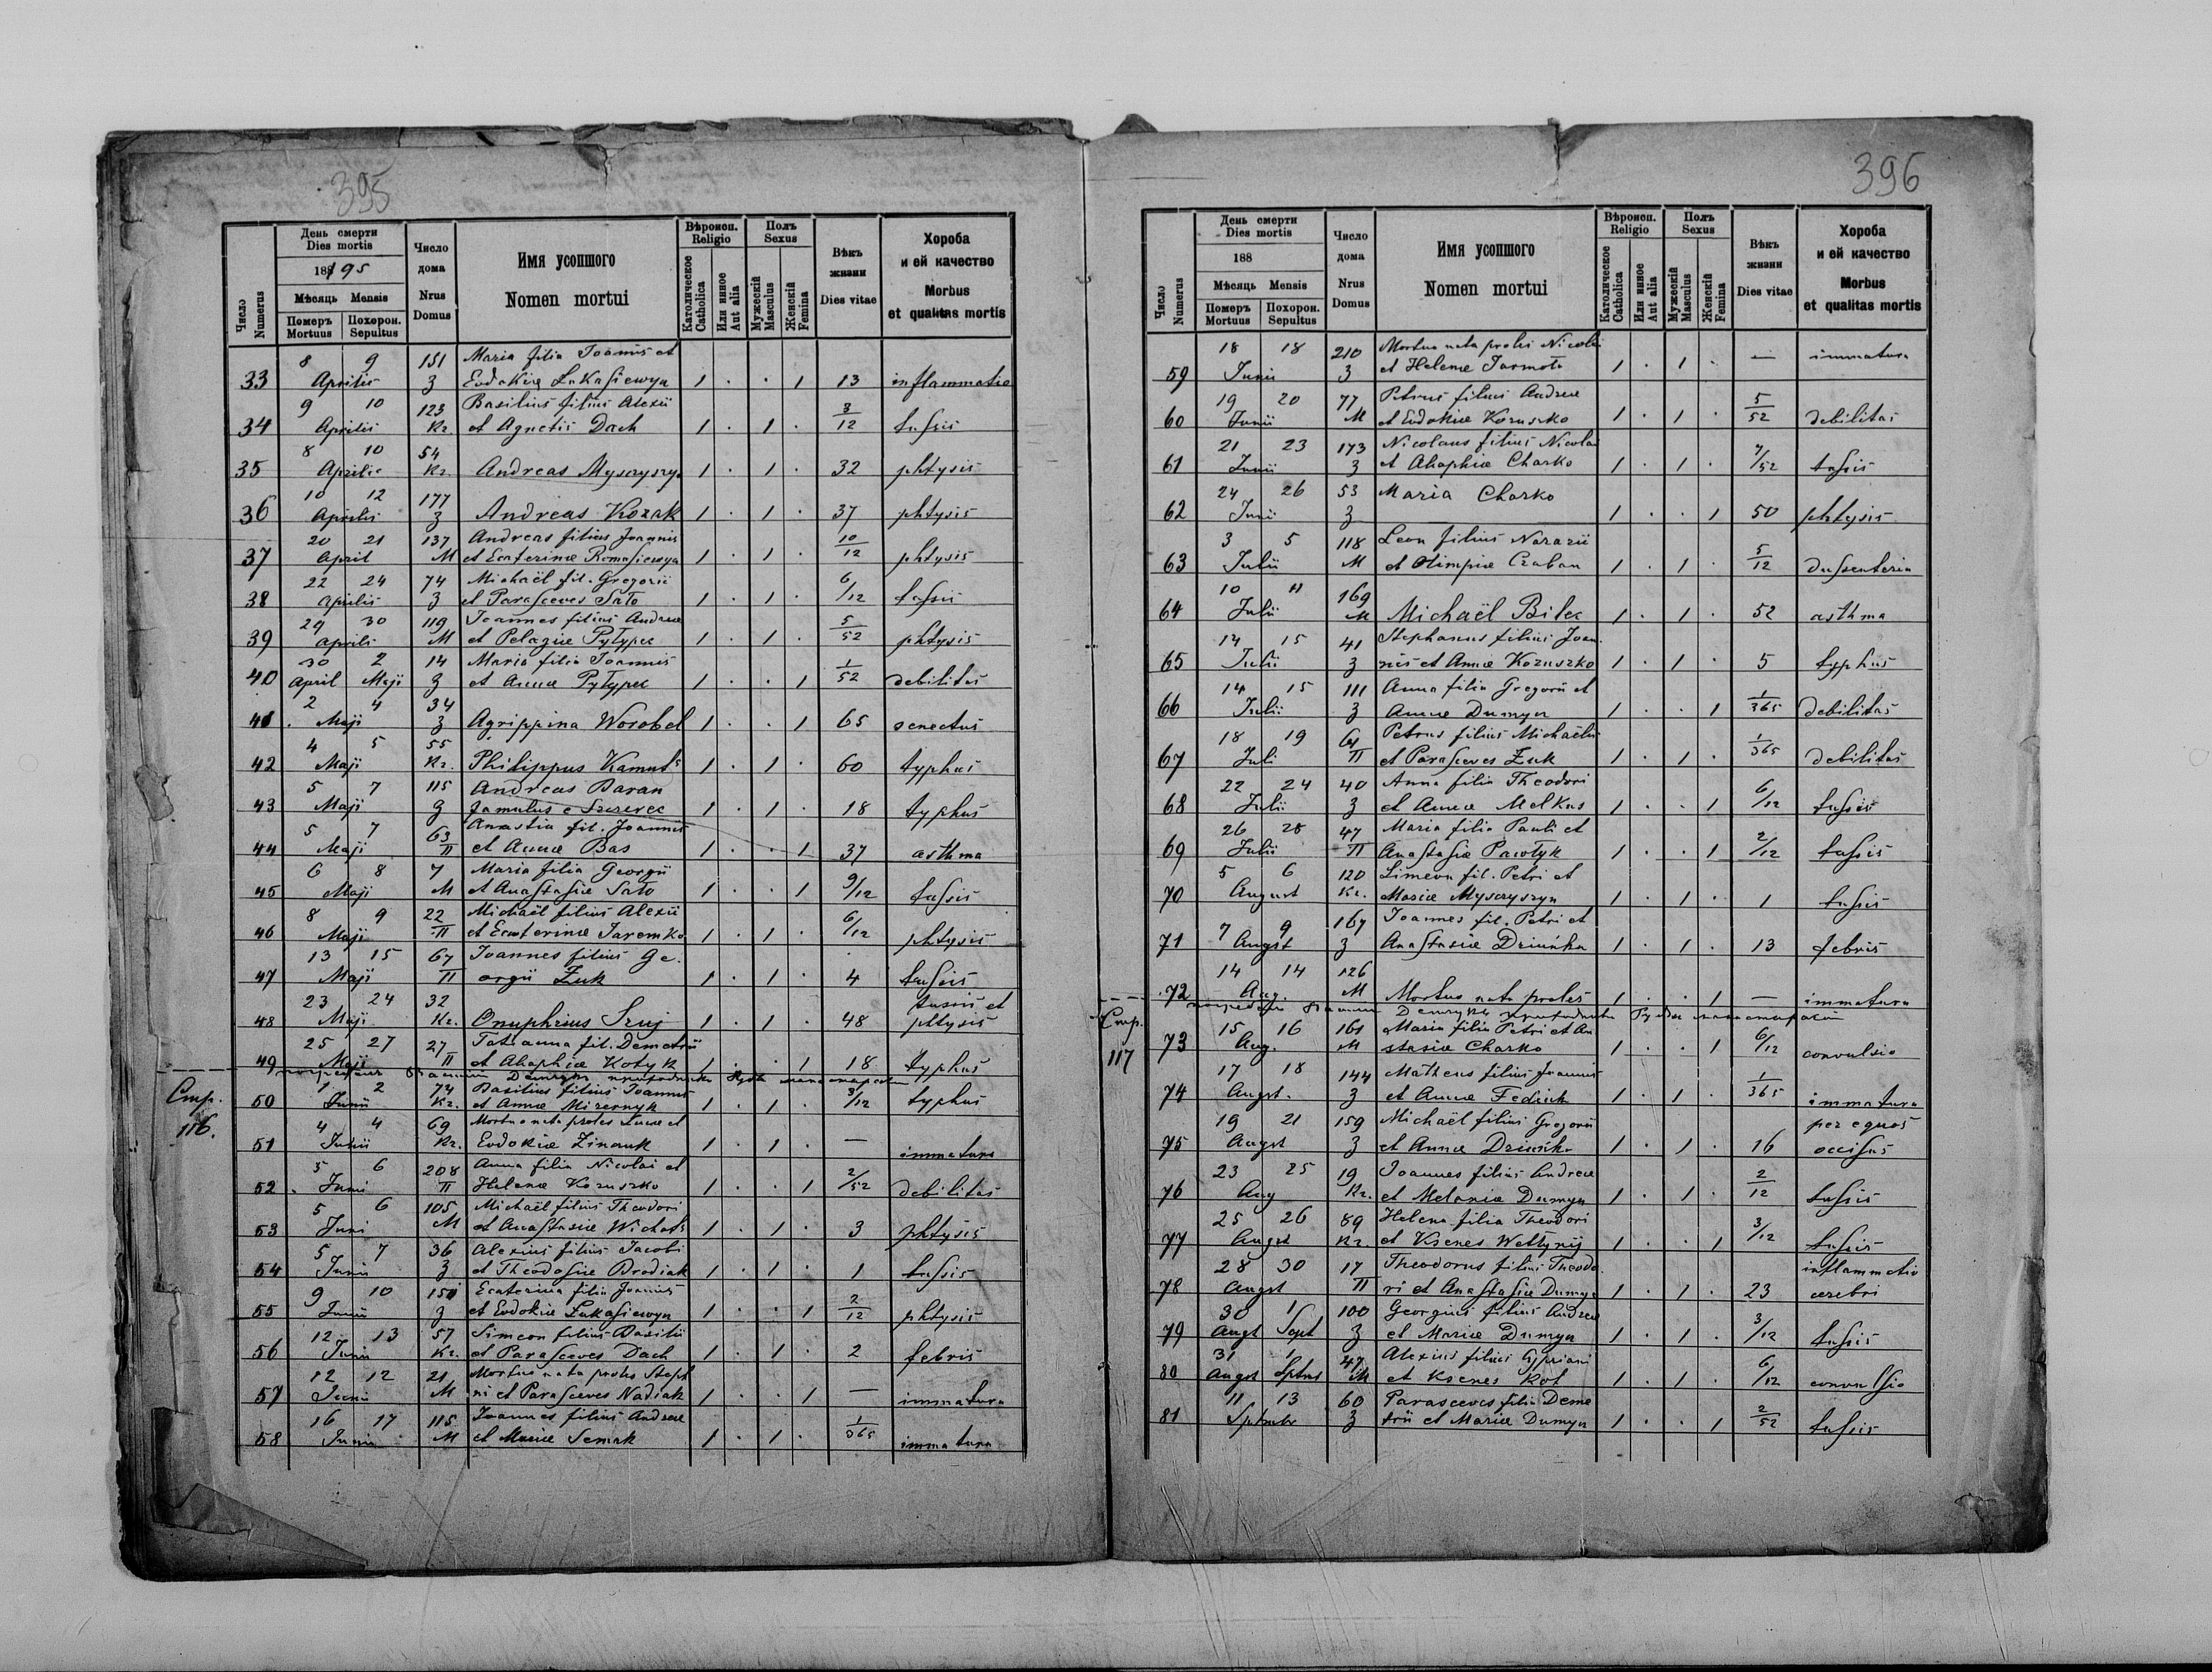 395
Число Numerus
День смерти Dies mortis
1895
Мѣсяць Mensis
Померъ Mortuus
Похорон. Sepultus
Число дома Nrus Domus
Имя усопшого Nomen mortui
Вѣроисп. Religio
Католическое Catholica
Или инное Aut alia
Полъ Sexus
Мужескій Masculus
Женскій Femina
Вѣкъ жизни Dies vitae
Хороба и ей качество Morbus et qualitas mortis
8 9 151 Maria filia Joannis et
33 Aprilis 3 Eudokiæ Łukasiewyn 1 . . 1 13 inflammatio
9 10 123 Basilius filius Alexii 3
34 Aprilis Kr. et Agnetis Dach 1 . 1 . 12 tussis
8 10 54
35 Aprilis Kr. Andreas Mysczyszyn 1 . 1 . 32 phtysis
10 12 177
36 Aprilis 3 Andreas Kozak 1 . 1 . 37 phtysis
20 21 137 Andreas filius Joannis 10
37 April M et Ecaterinæ Romasiewyn 1 . 1 . 12 phtysis
22 24 74 Michaël fil. Gregorii
38 Aprilis 3 et Parasceves Sato 1 . 1 . 6/12 tussis
29 30 119 Joannes filius Andreæ 5
39 Aprili M et Pelagiæ Pyłypec 1 . 1 . 52 phtysis
30 2 14 Maria filia Joannis 1
40 April Maji 3 et Annæ Pyłypec 1 . . 1 52 debilitas
2 4 34
41 . Maji 3 Agrippina Worobel 1 . . 1 65 senectus
4 5 55
42 Maji Kr. Philippus Kamuts 1 . 1 . 60 typhus
5 7 115 Andreas Baran
43 Maji 3 famulus e Szczerec 1 . 1 . 18 typhus
5 7 63 Anastia fil. Joannis
44 Maji П et Annæ Bas 1 . . 1 37 asthma
6 8 7 Maria filia Georgii
45 Maji M et Anastasiæ Sato 1 . . 1 9/12 tussis
8 9 22 Michaël filius Alexii
46 Maji П et Ecaterinæ Jaremko 1 . 1 . 6/12 phtysis
13 15 67 Joannes filius Ge.
47 Maji П orgii Żuk 1 . 1 . 4 tussis
23 24 32 tussis et
48 Maji Kr. Onuphrius Szuj 1 . 1 . 48 phtysis
25 27 27 Tatianna fil. Demetrii
49 Maji П et Ahaphiæ Kotyk 1 . . 1 18 typhus
Стр. 116.
1 2 74 Basilius filius Joannis
50 Junii Kr. et Annæ Mizernyk 1 . 1 . 3/12 typhus
4 4 69 Mortuo nata proles Lucæ et
51 Junii Kr. Eudokiæ Zinauk 1 . 1 . — immatura
5 6 208 Anna filia Nicolai et
52 . Juni П Helenæ Kozuszko 1 . . 1 2/52 debilitas
5 6 105 Michaël filius Theodori
53 Juni M et Anastasiæ 1 . 1 . 3 phtysis
5 7 36 Alexius filius Jacobi
54 Junii 3 et Theodosiæ Brodiak 1 . 1 . 1 tussis
9 10 151 Ecaterina filia Joannis 2
55 Junii 3 et Eudokiæ Łukasiewyn 1 . . 1 12 phtysis
12 13 57 Simeon filius Basilii
56 Junii Kr. et Parasceves Dach 1 . 1 . 2 febris
12 12 21 Mortuo nata proles Steph
57 Junii M ni et Parasceves Nadiak 1 . . 1 — immatura
16 17 115 Joannes filius Andreæ 1
58 Junii M et Mariæ Semak 1 . 1 . 365 immatura
396
Число Numerus
День смерти Dies mortis
188
Мѣсяць Mensis
Померъ Mortuus
Похорон. Sepultus
Число дома Nrus Domus
Имя усопшого Nomen mortui
Вѣроисп. Religio
Католическое Catholica
Или инное Aut alia
Полъ Sexus
Мужескій Masculus
Женскій Femina
Вѣкъ жизни Dies vitae
Хороба и ей качество Morbus et qualitas mortis
18 18 210 Mortuo nata proles Nicolai
59 Junii 3 et Helenæ Jarmoła 1 . 1 . — immatura
19 20 77 Petrus filius Andreæ 5
60 Junii M et Eudokiæ Kozuszko 1 . 1 . 52 debilitas
21 23 173 Nicolaus filius Nicolai
61 Junii 3 et Ahaphiæ Charko 1 . 1 . 7/52 tussis
24 26 53 Maria Charko
62 Junii 3 1 . . 1 50 phtysis
3 5 118 Leon filius Nazarii 5
63 Julii M et Olimpiæ Czaban 1 . 1 . 12 dussenteria
10 11 169
64 Julii M Michaël Bilec 1 . 1 . 52 asthma
14 15 41 Stephanus filius Joan.
65 Julii 3 nis et Annæ Kozuszko 1 . 1 . 5 typhus
14 15 111 Anna filia Gregorii et 1
66 Julii 3 Annæ Dumyn 1 . . 1 365 debilitas
18 19 Petrus filius Michaëlis 1
67 Juli П et Parasceves Żuk 1 . 1 . 365 debilitas
22 24 40 Anna filia Theodori
68 Julii 3 et Annæ Melkus 1 . . 1 6/12 tussis
26 28 47 Maria filia Pauli et
69 Julii П Anastasiæ Pawłyk 1 . . 1 2/12 tussis
5 6 120 Simeon fil. Petri et
70 August Kr. Mariæ Mysczyszyn 1 . 1 . 1 tussis
7 9 167 Joannes fil. Petri et
71 Augst 3 Anastasiæ Dziuńka 1 . 1 . 13 febris
14 14 126
72 Aug. M Mortuo nata proles 1 . . 1 — immatura
Стр. 117
15 16 161 Maria filia Petri et An
73 Aug. M stasiæ Charko 1 . . 1 6/12 convulsio
17 18 144 Matheus filius Joannis 1
74 Augst. 3 et Annæ Fediuk 1 . 1 . 365 immatura
19 21 159 Michaël filius Gregorii per equos
75 Augst 3 et Annæ Dziuńka 1 . 1 . 16 occisus
23 25 19 Joannes filius Andreæ 2
76 Aug Kr. et Melaniæ Dumyn 1 . 1 . 12 tussis
25 26 89 Helena filia Theodori
77 Augst Kr. et Ksenes 1 . . 1 3/12 tussis
28 30 17 Theodorus filius Theodo. inflammatio
78 Augst П ri et Anastasiæ Dumyn 1 . 1 . 23 cerebri
30 1 100 Georgius filius Andreæ
79 Augt Sept 3 et Mariæ Dumyn 1 . 1 . 3/12 tussis
31 1 47 Alexius filius Cypriani
80 Augst Sptms M et Ksenes Kot 1 . 1 . 6/12 convulsio
11 13 60 Parasceves filia Deme 2
81 Sptmbr 3 trii et Mariæ Dumyn 1 . . 1 52 tussis